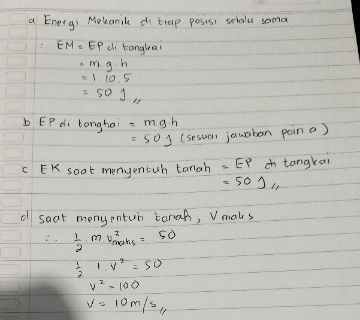 a Energi Mekanik di tiap posisi selalu sama
∴ EM = EP di tangkai
= m g . h
= 1 . 10 . 5
= 50 J
b EP di tangkai = m g . h
= 50 J (sesuai jawaban poin a)
c EK saat menyentuh tanah = EP di tangkai
= 50 J
d saat menyentuh tanah, V maks
∴ 1/2 . m . v²maks = 50
1/2 . 1 . v² = 50
v² = 100
v = 10 m/s